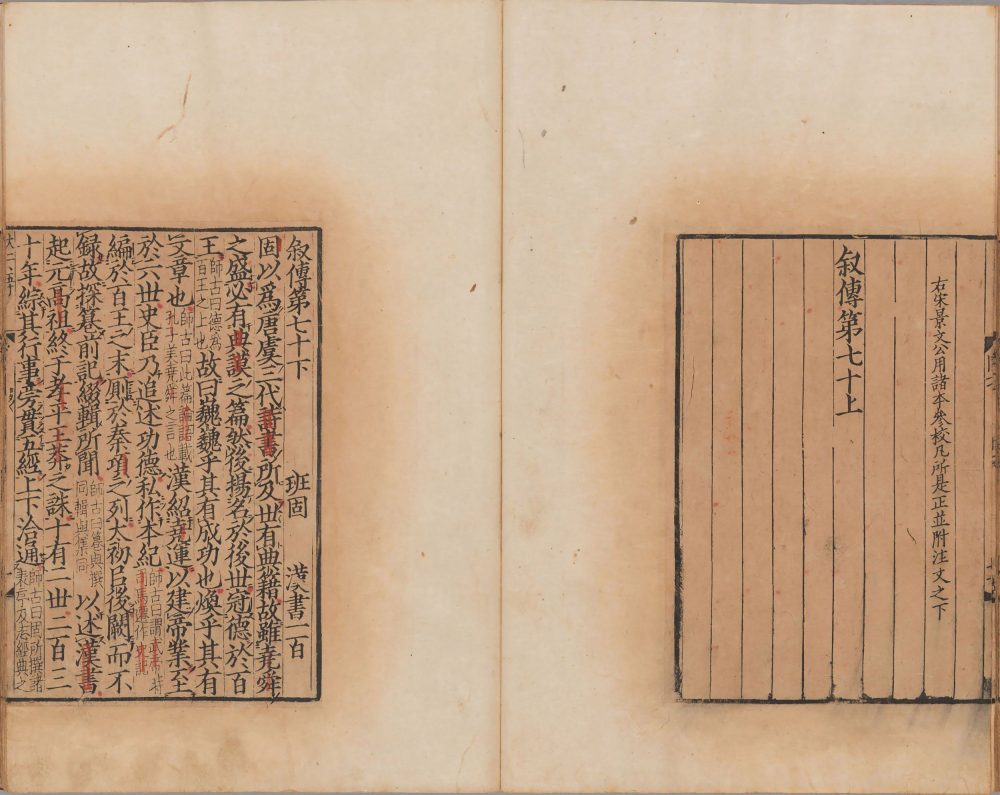 右宋景文公用諸本參校凡所是正並附注文之下
叙傳第七十上
叙傳第七十下
班固 漢書一百
固以爲唐虞三代詩書所及世有典籍故雖堯舜
之盛必有典謨之篇然後揚名於後世冠德於百
王師古曰德爲百王之上也故曰巍巍乎其有成功也煥乎其有
文章也師古曰此篇論語載孔子美堯舜之言也漢紹堯運以建帝業至
於六世史臣乃追述功德私作本紀師古曰謂武帝時司馬遷作史記
編於百王之末厠於秦項之列太初以後闕而不
録故探篹前記綴輯所聞師古曰篹與撰同輯與集同以述漢書
起元高祖終于孝平王莽之誅十有二世二百三
十年綜其行事旁貫五經上下洽通師古曰固所撰諸表序及志經典之